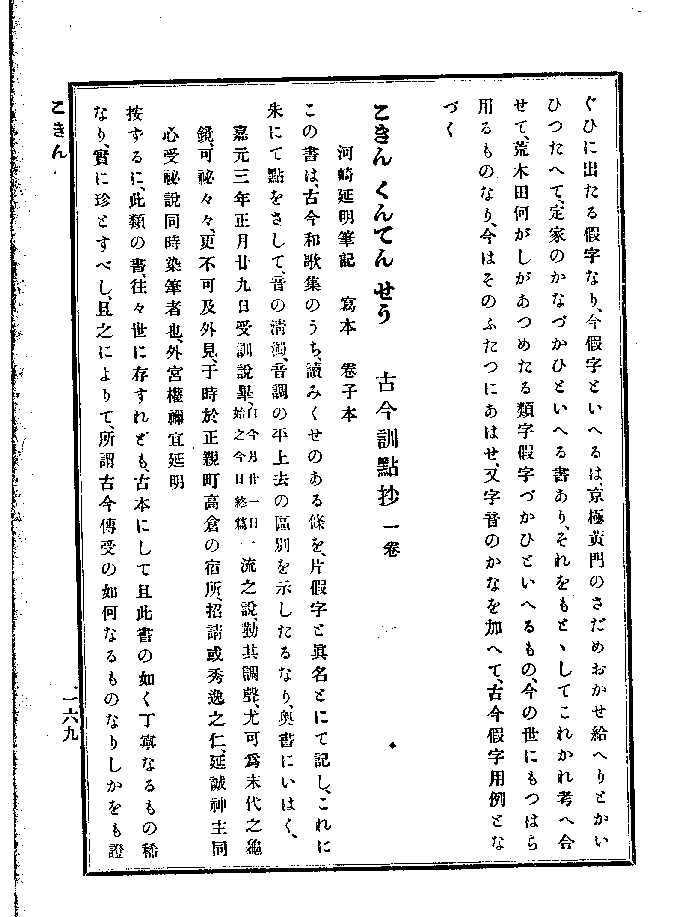 ぐひに出たる假字なり、今假字といへるは、京極黄門のさだめおかせ給へりとかい
ひつたへて、定家のかなづかひといへる書あり、それをもとゝしてこれかれ考へ合
せて、荒木田何がしがあつめたる類字假字づかひといへるもの、今の世にもつはら
用るものなり、今はそのふたつにあはせ、又字音のかなを加へて、古今假字用例とな
づく
こきん くんてん せう 古今訓點抄 一卷
河崎延明筆記 寫本 卷子本
この書は、古今和歌集のうち、讀みくせのある條を、片假字と眞名とにて記し、これに
朱にて點をさして、音の清濁、音調の平上去の區別を示したるなり、奥書にいはく、
嘉元三年正月廿九日受訓説畢、自今月廿一日始之今日終篇一流之説、勤其調聲、尤可爲末代之龜
鏡、可祕々々、更不可及外見、于時於正親町高倉の宿所、招請或秀逸之仁、延誠神主同
心受祕説同時染筆者也、外宮權禰宜延明
按ずるに、此類の書、往々世に存すれども、古本にして且此書の如く丁寧なるもの稀
なり、實に珍とすべし、且之によりて、所謂古今傳受の如何なるものなりしかをも證
こきん
二六九